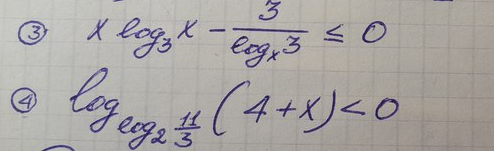 ③ x log₃x − 3/logₓ3 ≤ 0
④ log_{log₂ 11/3} (4+x) < 0